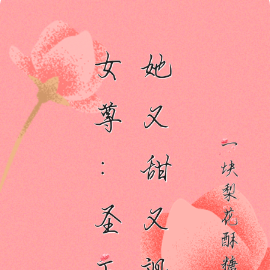 她又甜又
女尊：圣
一块梨花酥糖